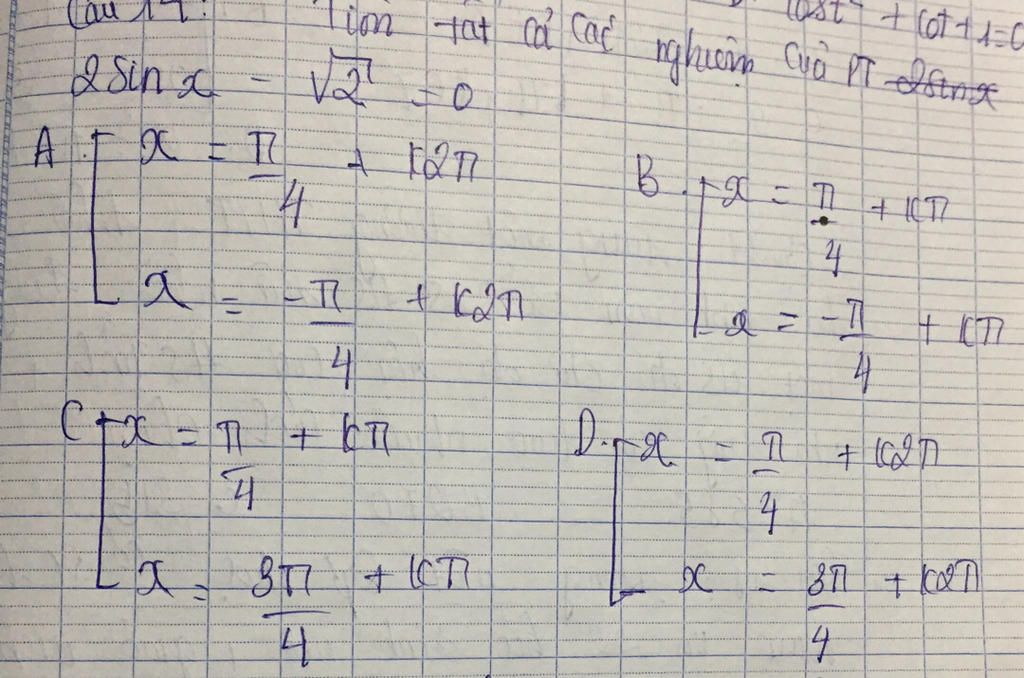 Câu 14: Tìm tất cả các nghiệm của PT
2sinx - √2 = 0
A. [ x = π/4 + k2π
x = -π/4 + k2π
B. [ x = π/4 + kπ
x = -π/4 + kπ
C [ x = π/4 + kπ
x = 3π/4 + kπ
D. [ x = π/4 + k2π
x = 3π/4 + k2π